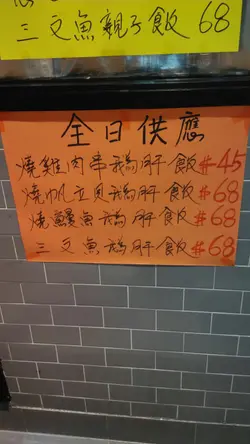 三文魚親子飯 68
全日供應
燒雞肉串鵝肝飯 #45
燒帆立貝鵝肝飯 #68
燒鰻魚鵝肝飯 #68
三文魚鵝肝飯 #68